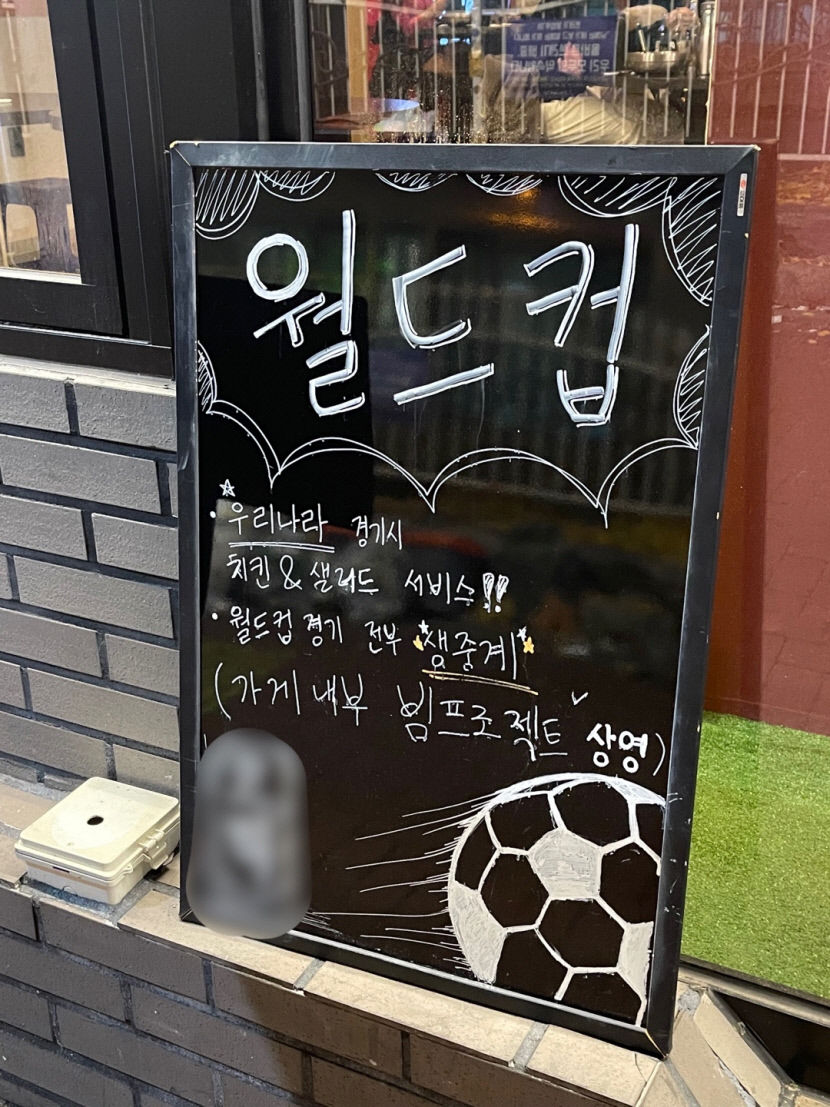 월드컵
• 우리나라 경기시
치킨 & 샐러드 서비스!!
• 월드컵 경기 전부 생중계
(가게 내부 빔프로젝트 상영)